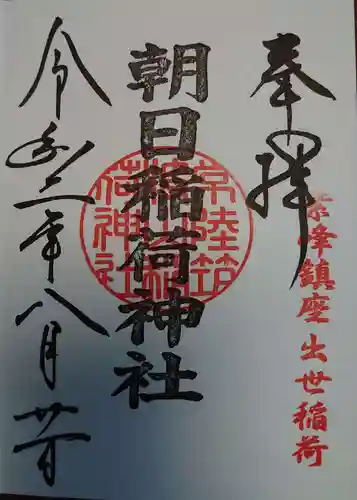 奉拝
紫峰鎮座出世稲荷
朝日稲荷神社
常陸筑
荷神社
令和二年八月廿一日